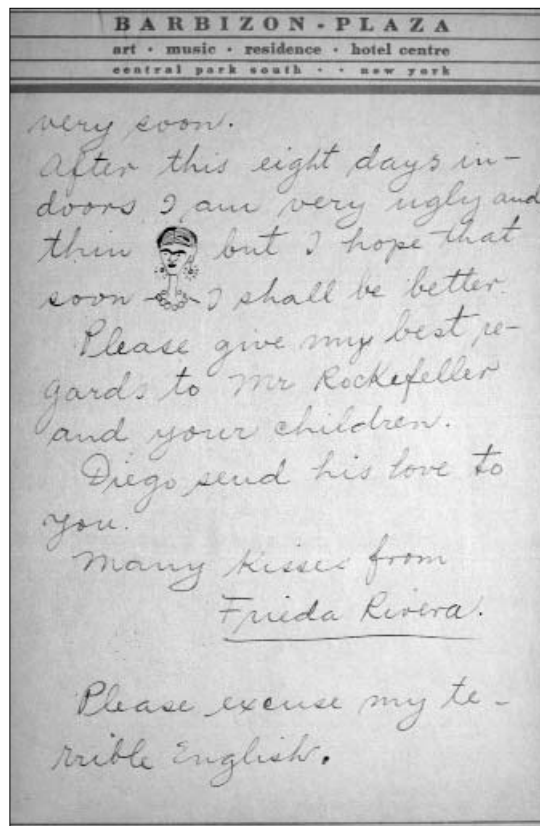 BARBIZON-PLAZA
art · music · residence · hotel centre
central park south · · new york
very soon.
After this eight days in-
doors I am very ugly and
thin but I hope that
soon I shall be better.
Please give my best re-
gards to Mr Rockefeller
and your children.
Diego send his love to
you.
Many kisses from
Frieda Rivera.
Please excuse my te-
rrible English.